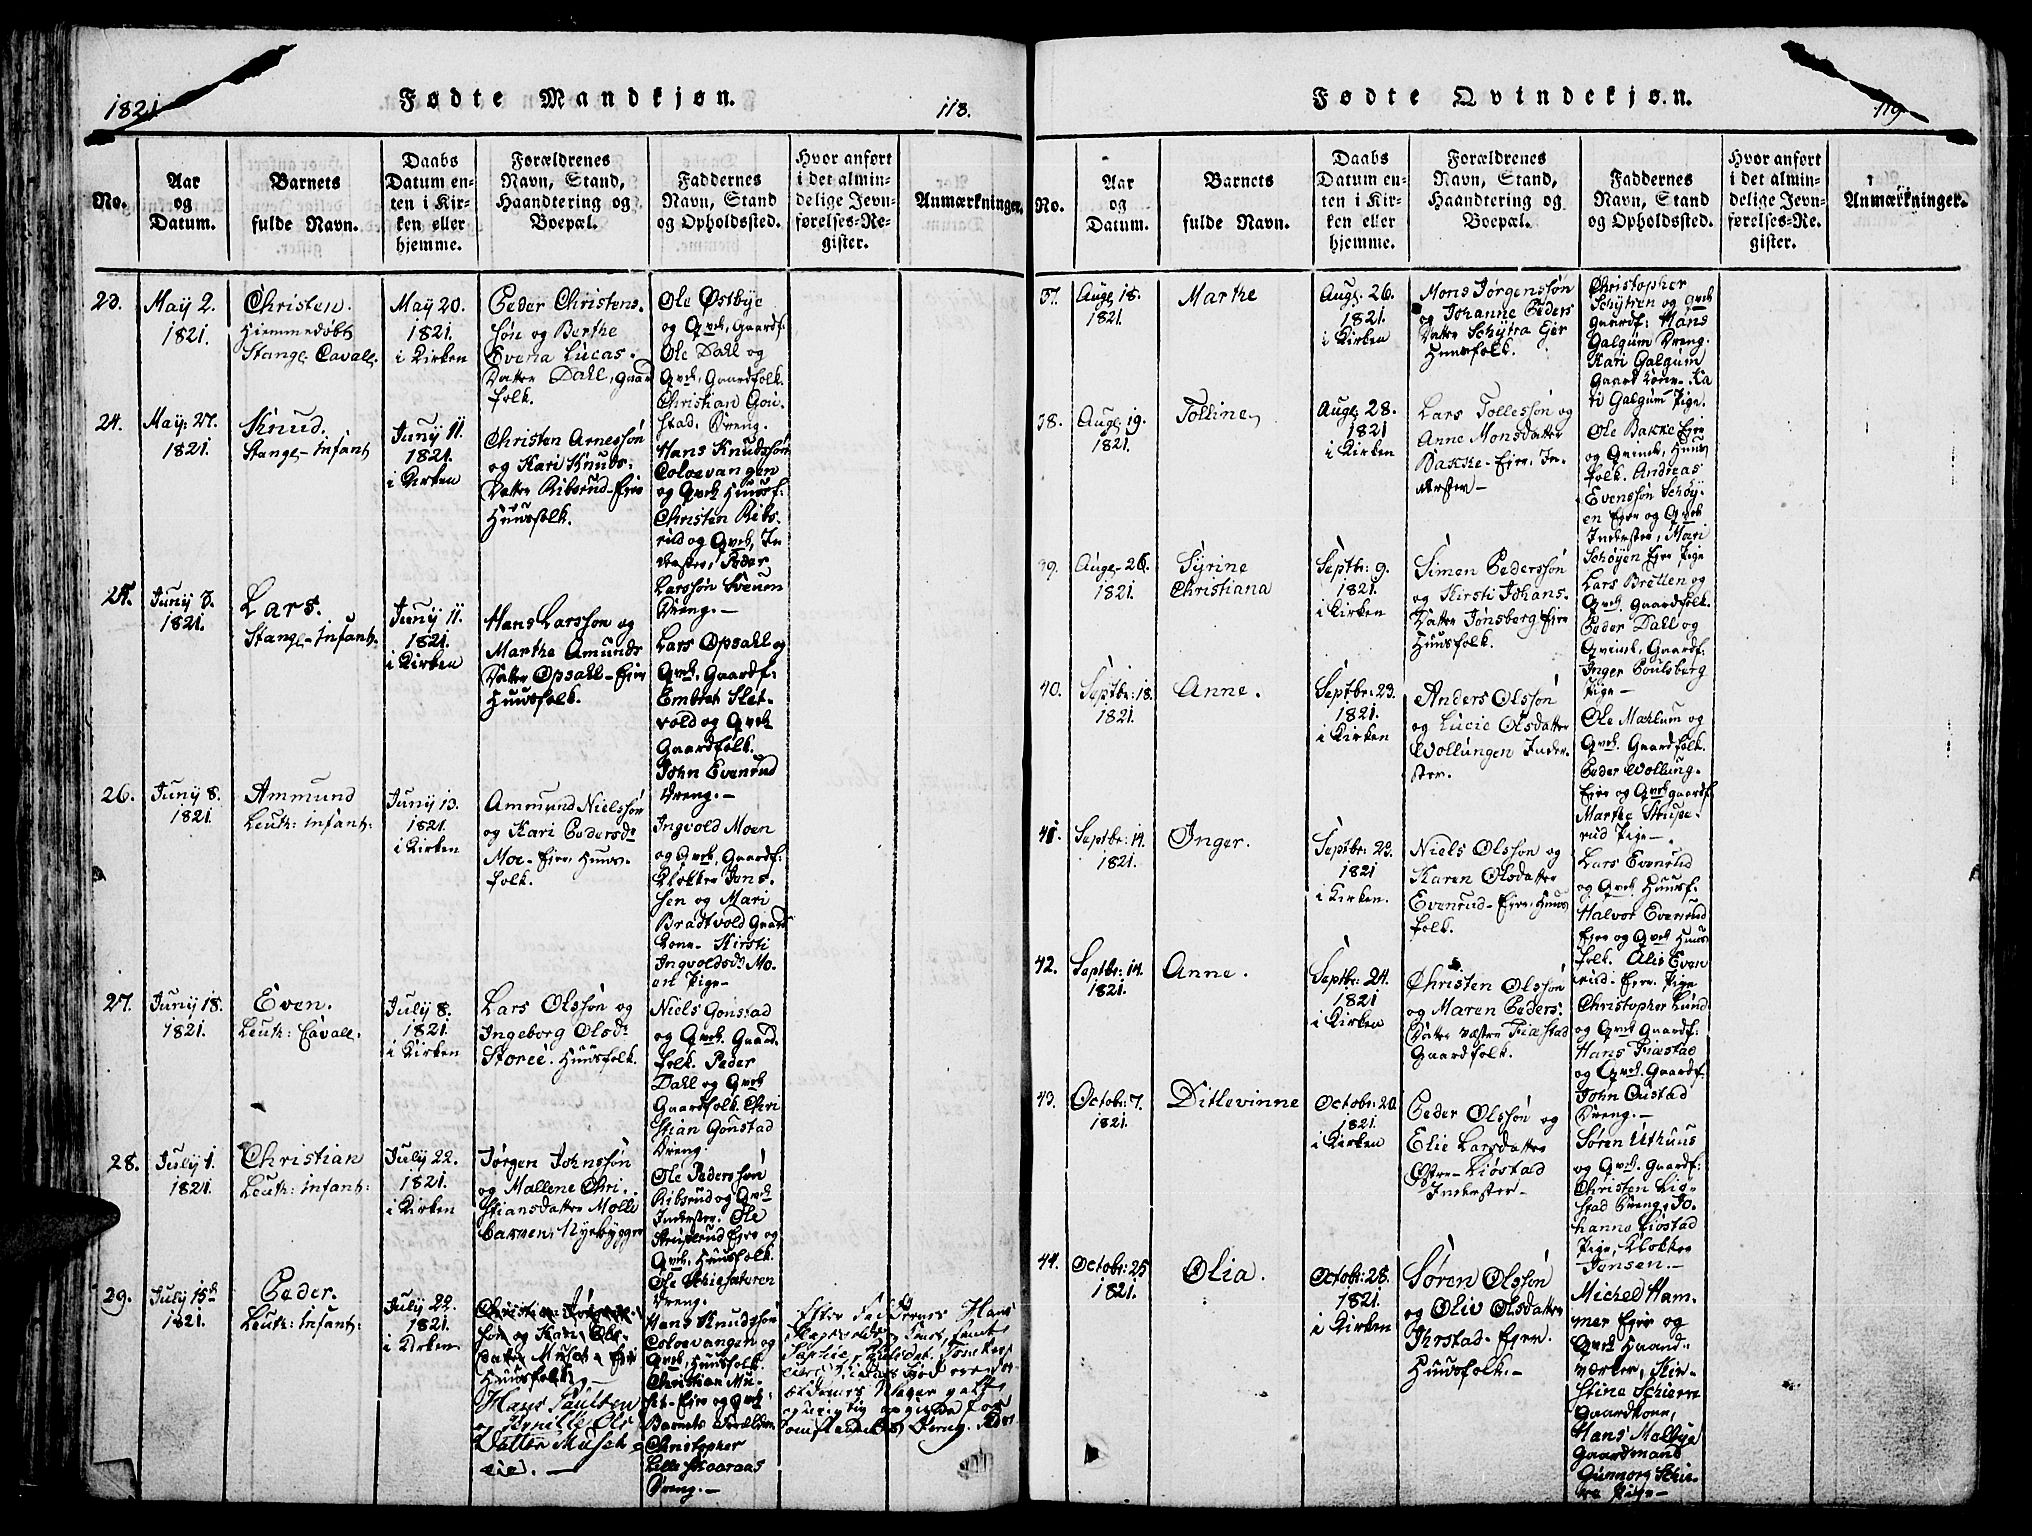 1821.
Fødte Mandkjøn.
118.
No.
Aar
og
Datum.
Barnets
fulde Navn.
Daabs
Datum en-
ten i Kir-
ken eller
hjemme.
Forældrenes
Navn, Stand,
Haandtering og
Boepæl.
Faddernes
Navn, Stand
og Opholdssted.
Hvor anført
i det almin-
delige Jevn-
førelses-Re-
gister.
Anmærkninger.
23.
May 2.
1821.
Christen.
Hiemmedøbt
Stange Cavall.
May 20.
1821.
i Kirken
Peder Christens-
søn og Berthe
Evena Lucas-
Datter Dahl, Gaard
folk.
Ole Østbye
og Qvck, Gaardf:
Ole Dahl og
Qvck, Gaardfolk.
Christian Gon-
stad, Dreng.
24.
May: 27.
1821.
Knud.
Stange-Infant
Juny 11.
1821.
i Kirken
Christen Arnessøn
og Kari Knuds-
Datter Ribsrud-Eier
Huusfolk.
Hans Knudssøn
Coloevangen
og Qvck Huusf:
Christen Ribs-
rud og Qvck, In
derster, Peder
Larssøn Sveum
Dreng.-
25.
Juny 3.
1821.
Lars.
Stange-Infant:
Juny 11.
1821.
i Kirken
Hans Larssøn og
Marthe Amunds
Datter Opsahl-Eier
Huusfolk.
Lars Opsahl og
Qvck, Gaardf:
Embret Slet-
vold og Qvck
Gaardfolk.
John Evenrud
Dreng.-
26.
Juny 8.
1821.
Ammund
Leuth: Infant:
Juny 13.
1821.
i Kirken
Ammund Nielssøn
og Kari Pedersdr
Moe-Eier, Huus-
folk.
Ingvold Moen
og Qvck, Gaardf:
Klokker Jons-
sen og Mari
Bradtvold Gaard
Kone- Kirsti
Ingvoldsdr Mo-
en Pige-
27.
Juny 18.
1821.
Even.
Leuth: Cavall.
July 8.
1821.
i Kirken
Lars Olssøn og
Ingeborg Olsdr
Storee. Huusfolk.
Niels Gonstad
og Qvck. Gaard-
folk. Peder
Dahl og Qvck
Gaardfolk. Chri
stian Gonstad
Dreng.
28.
July 1.
1821.
Christian
Leuth: Infant:
July 22.
1821.
i Kirken
Jørgen Johnssøn
og Mallene Chri-
stiansdatter Molle
bakken, Nyebygger
Ole Pederssøn
Ribsrud og Qvck
Inderster. Ole
Struperud Eier og
Qvck, Huusfolk.
Ole Schiesæteren
Dreng.
29.
July 15de
1821.
Peder.
Leuth: Infant:
July 22.
1821.
i Kirken
Huusfolk.
Hans Paulsen
og Pernille Ols
Datter Musch-
eie.-
Hans Knudssøn
Coloevangen og
Qvck Huusfolk.
Christian Mu-
set- Eier og Qvck
Barnets Forældre
Christopher
Lille Skaaraas
Dreng.-
Fødte Qvindekjøn.
119
No.
Aar
og
Datum.
Barnets
fulde Navn.
Daabs
Datum en-
ten i Kir-
ken eller
hjemme.
Forældrenes
Navn, Stand,
Haandtering og
Boepæl.
Faddernes
Navn, Stand
og Opholdssted.
Hvor anført
i det almin-
delige Jevn-
førelses-Re-
gister.
Anmærkninger.
37.
Aug: 18.
1821.
Marthe
Aug: 26.
1821.
i Kirken
Mons Jørgenssøn
og Johanne Peders
Datter Schytra Eier
Huusfolk.
Christopher
Schytren og Qvck
Gaardf: Hans
Galgum Dreng.
Kari Galgum
Gaard Kone- Ka
ri Galgum Pige.
38.
Aug: 19.
1821.
Tolline
Aug: 28.
1821
i Kirken
Lars Tollessøn og
Anne Monsdatter
Bakke-Eier, In-
derster-
Ole Bakke Eier
og Qvinde, Huus
folk. Andreas
Evenssøn Schøy-
en Eier og Qvck
Inderster, Mari
Schøyen Eier Pige
39.
Aug: 26.
1821.
Syrine
Christiana
Septbr: 9.
1821.
i Kirken
Simen Pederssøn
og Kirsti Johans-
Datter Jønsberg Eier
Huusfolk.
Lars Bretten og
Qvck. Gaardfolk.
Peder Dahl og
Qvinde, Gaardf:
Inger Poulsberg
Pige-
40.
Septbr: 18.
1821.
Anne.
Septbr: 23.
1821.
i Kirken
Anders Olssøn
og Lucie Olsdatter
Wollungen Inder-
ster.
Ole Maxlum og
Qvck. Gaardfolk.
Peder Wollung-
Eier og Qvck Gaardf.
Marthe Strupe-
rud Pige-
41.
Septbr: 14.
1821.
Inger.
Septbr: 23.
1821
i Kirken.
Niels Olssøn og
Karen Olsdatter
Evenrud-Eier, Huus
folk.
Lars Evenrud
og Qvck Huusf:
Halvor Evenrud
Eier og Qvck Huus
folk. Alis Even
rud- Eier- Pige
42.
Septbr: 14.
1821.
Anne.
Septbr: 24.
1821
i Kirken
Christen Olssøn
og Maren Peders-
Datter Væstre Fiæstad
Gaardfolk.
Christopher Lund
og Qvck Gaardf:
Hans Fiæstad
og Qvck. Gaardf.
John Oustad
Dreng.-
43.
Octobr: 7.
1821.
Ditlevinne
Octobr: 20.
1821.
i Kirken
Peder Olssøn og
Elie Larsdatter
Østre-Liøstad
Inderster-
Søren Uthuus
og Qvck. Gaardf:
Christen Liø-
stad Dreng, Jo-
hanne Liøstad
Pige, Klokker
Jonsen.-
44.
Octobr: 25
1821.
Olia.
Octobr: 28.
1821.
i Kirken
Søren Olssøn
og Oliv Olsdatter
Ihrstad-Eier.
Huusfolk.-
Michel Ham-
mer Eier og
Qvck Haand-
værker, Kir-
stine Schierre
Gaardkone,
Hans Malbye
Gaardmand
Gunnorg Schie-
rre Pige-